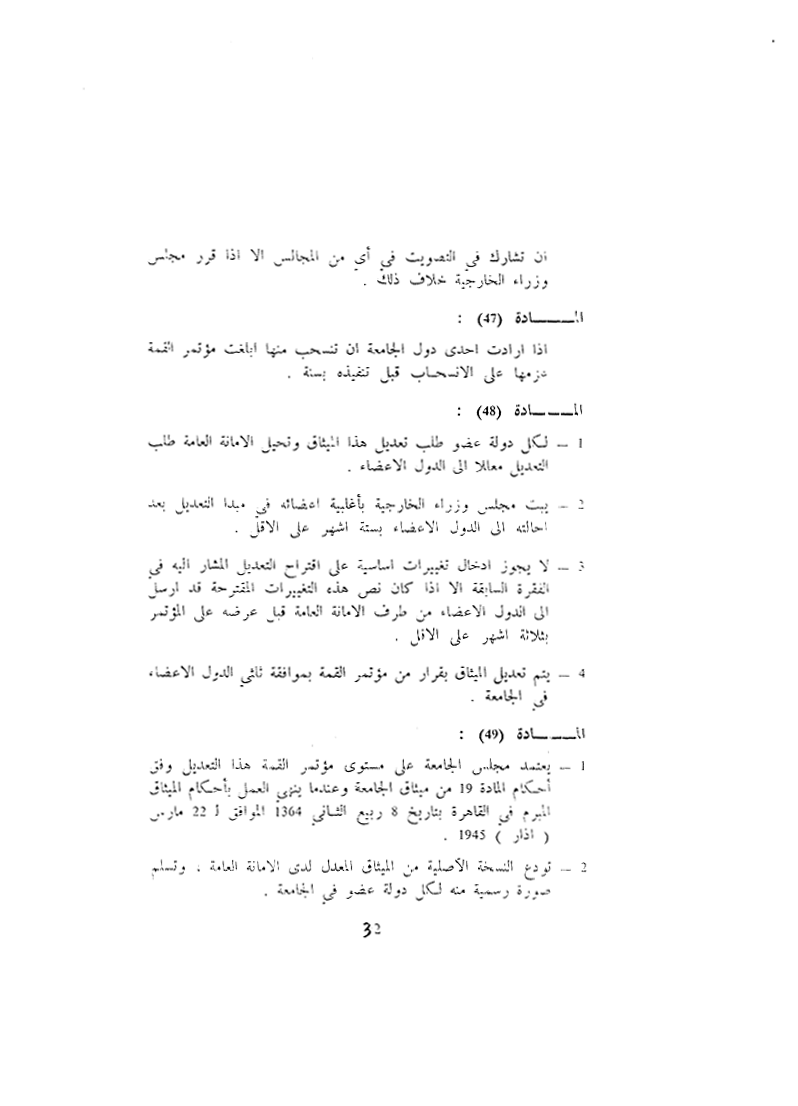 ان تشارك في التصويت في أي من المجالس الا اذا قرر مجلس
وزراء الخارجية خلاف ذلك .
المــــــادة (47) :
اذا ارادت احدى دول الجامعة ان تنسحب منها ابلغت مؤتمر القمة
عزمها على الانسحاب قبل تنفيذه بسنة .
المــــــادة (48) :
1 – لكل دولة عضو طلب تعديل هذا الميثاق وتحيل الامانة العامة طلب
التعديل معللا الى الدول الاعضاء .
2 – يبت مجلس وزراء الخارجية بأغلبية اعضائه في مبدا التعديل بعد
احالته الى الدول الاعضاء بستة اشهر على الاقل .
3 – لا يجوز ادخال تغييرات اساسية على اقتراح التعديل المشار اليه في
الفقرة السابقة الا اذا كان نص هذه التغييرات المقترحة قد ارسل
الى الدول الاعضاء من طرف الامانة العامة قبل عرضه على المؤتمر
بثلاثة اشهر على الاقل .
4 – يتم تعديل الميثاق بقرار من مؤتمر القمة بموافقة ثلثي الدول الاعضاء
في الجامعة .
المــــــادة (49) :
1 – يعتمد مجلس الجامعة على مستوى مؤتمر القمة هذا التعديل وفق
أحكام المادة 19 من ميثاق الجامعة وعندما ينهي العمل بأحكام الميثاق
المبرم في القاهرة بتاريخ 8 ربيع الثاني 1364 الموافق لـ 22 مارس
( اذار ) 1945 .
2 – تودع النسخة الأصلية من الميثاق المعدل لدى الامانة العامة ، وتسلم
صورة رسمية منه لكل دولة عضو في الجامعة .
32